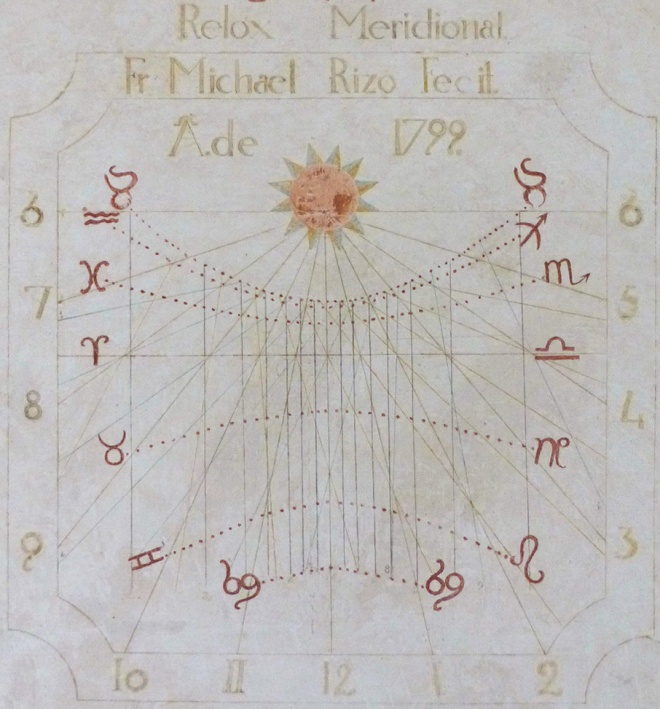 Relox Meridional
Fr Michael Rizo Fecit.
A. de 1799.
6 6
7 5
8 4
9 3
10 11 12 1 2